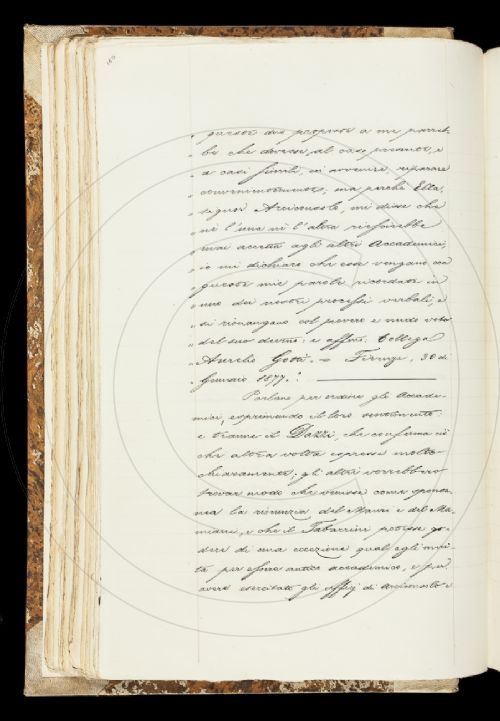 " queste due proposte a me parreb-
" be che dovesse, al caso presente, e
" a casi simili, in avvenire, riparare
" convenientemente, ma perchè Ella,
" signor Arciconsolo, mi disse che
" nè l'una nè l'altra riescirebbe
" mai accetta agli altri Accademici,
" io mi dichiaro che esse vengano con
" queste mie parole ricordate in
" uno dei nostri processi verbali, e
" vi rimangano col povero e nudo voto
" del suo devmo: e affmo: Collega
" Aurelio Gotti. = Firenze, 30 di
" Gennaio 1877."
Parlano per ordine gli Accade-
mici, esprimendo il loro sentimento:
e tranne il Dazzi, che conferma ciò
che altra volta espresse molto
chiaramente; gli altri vorrebbero
trovar modo che venisse come sponta-
nea la rinunzia del Mauri e del Ma-
miani, e che il Tabarrini potesse go-
dere di una eccezione qual egli meri-
ta per essere antico accademico, e per
avere esercitati gli uffizj di Arciconsolo e